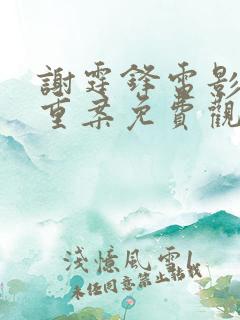 謝霆鋒電影
重案免費觀
淺憶風雲1
未经同意禁止转载